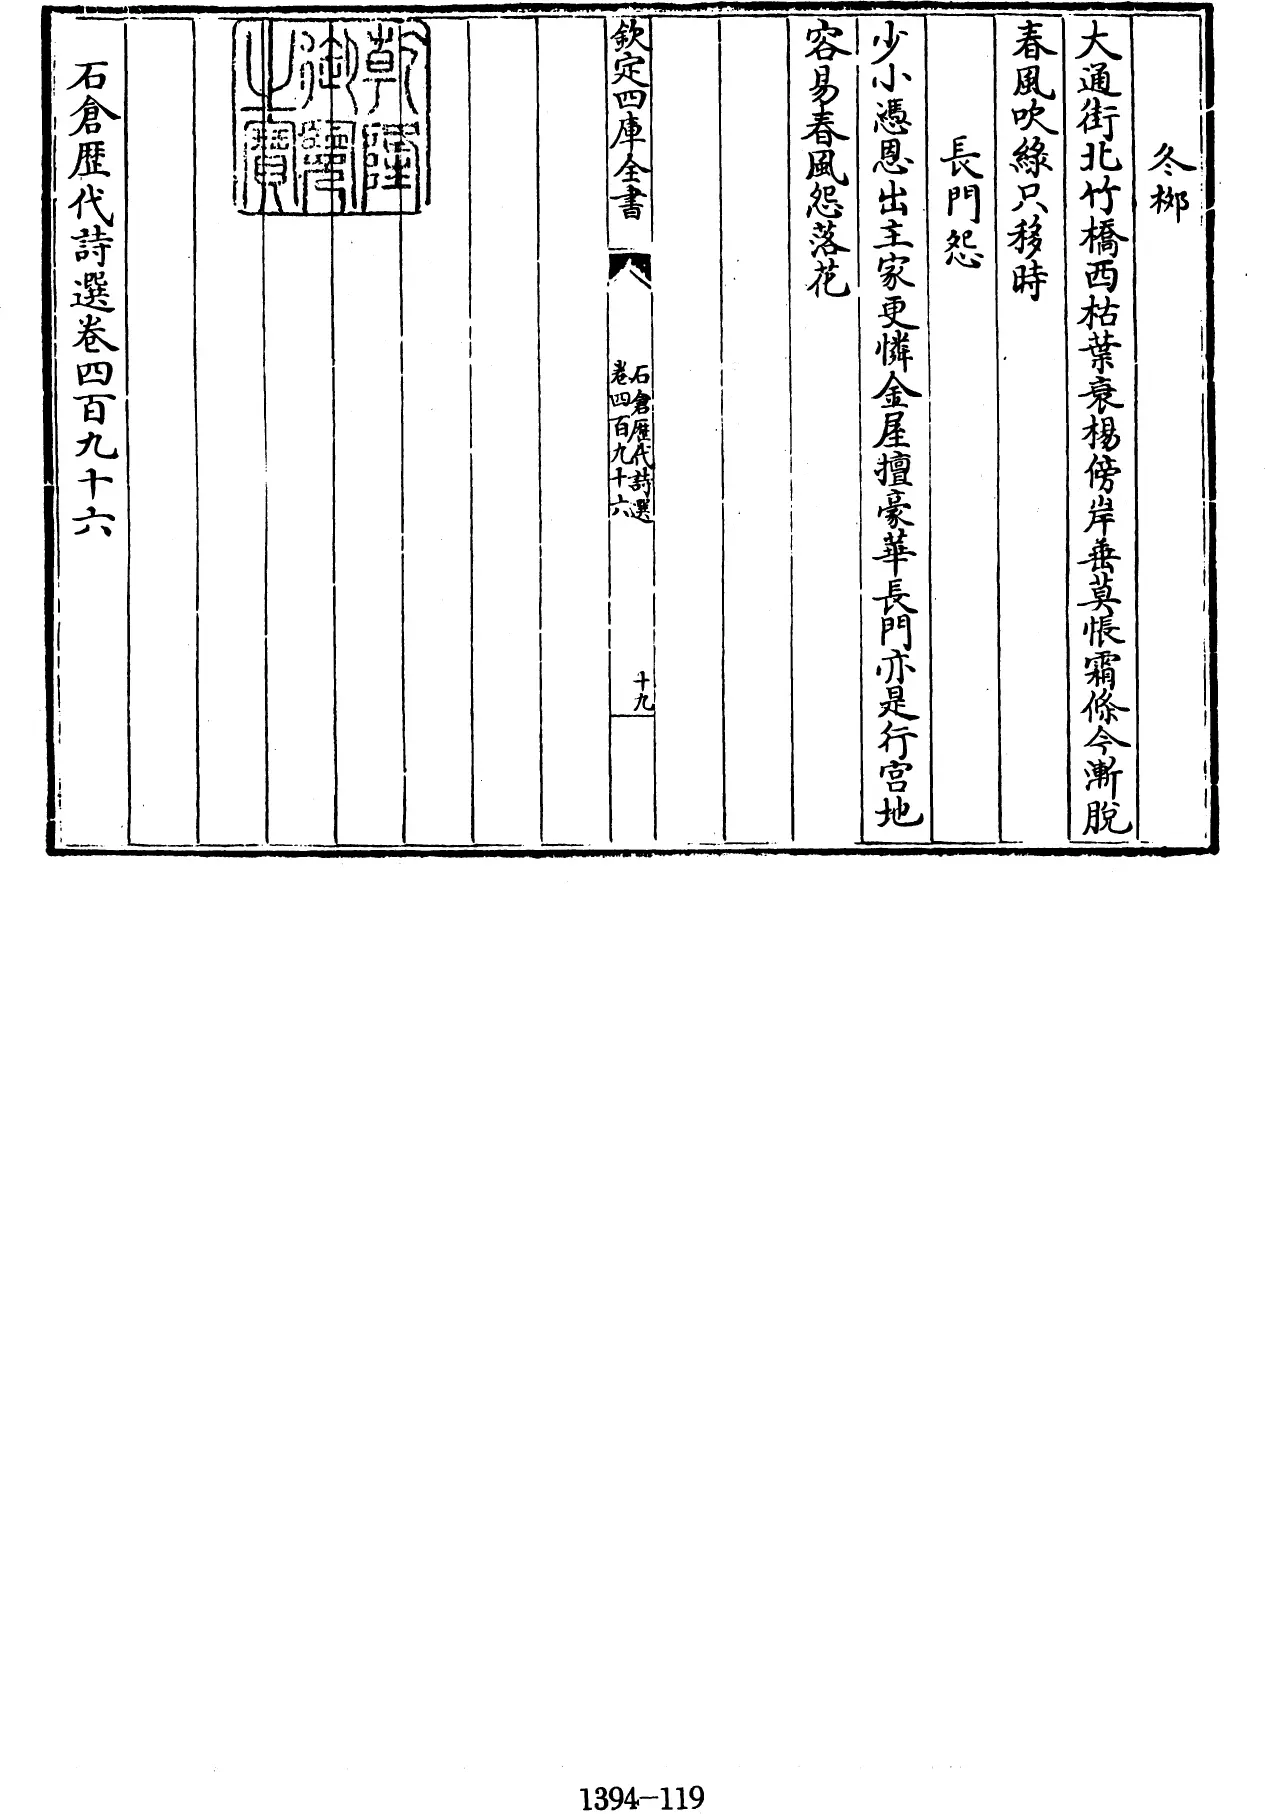 冬栁
大通街北竹橋西枯葉衰楊傍岸垂莫悵霜條今漸脫
春風吹綠只移時
長門怨
少小憑恩出主家更憐金屋擅豪華長門亦是行宫地
容易春風怨落花
欽定四庫全書
石倉歴代詩選
卷四百九十六
十九
乾隆御覽之寶
石倉歴代詩選卷四百九十六
1394-119